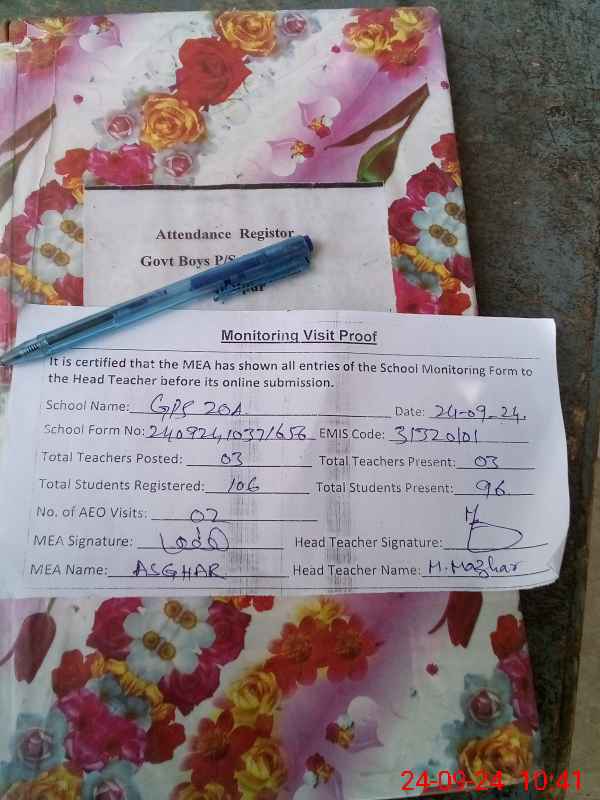 Attendance Registor
Govt Boys P/S
pur
Monitoring Visit Proof
It is certified that the MEA has shown all entries of the School Monitoring Form to
the Head Teacher before its online submission.
School Name: GPS 20A Date: 24-09-24.
School Form No: 2409241037/656 EMIS Code: 31320101
Total Teachers Posted: 03 Total Teachers Present: 03
Total Students Registered: 106 Total Students Present: 96
No. of AEO Visits: 02
MEA Signature: Head Teacher Signature:
MEA Name: ASGHAR Head Teacher Name: M. Mazhar
24-09-24 10:41